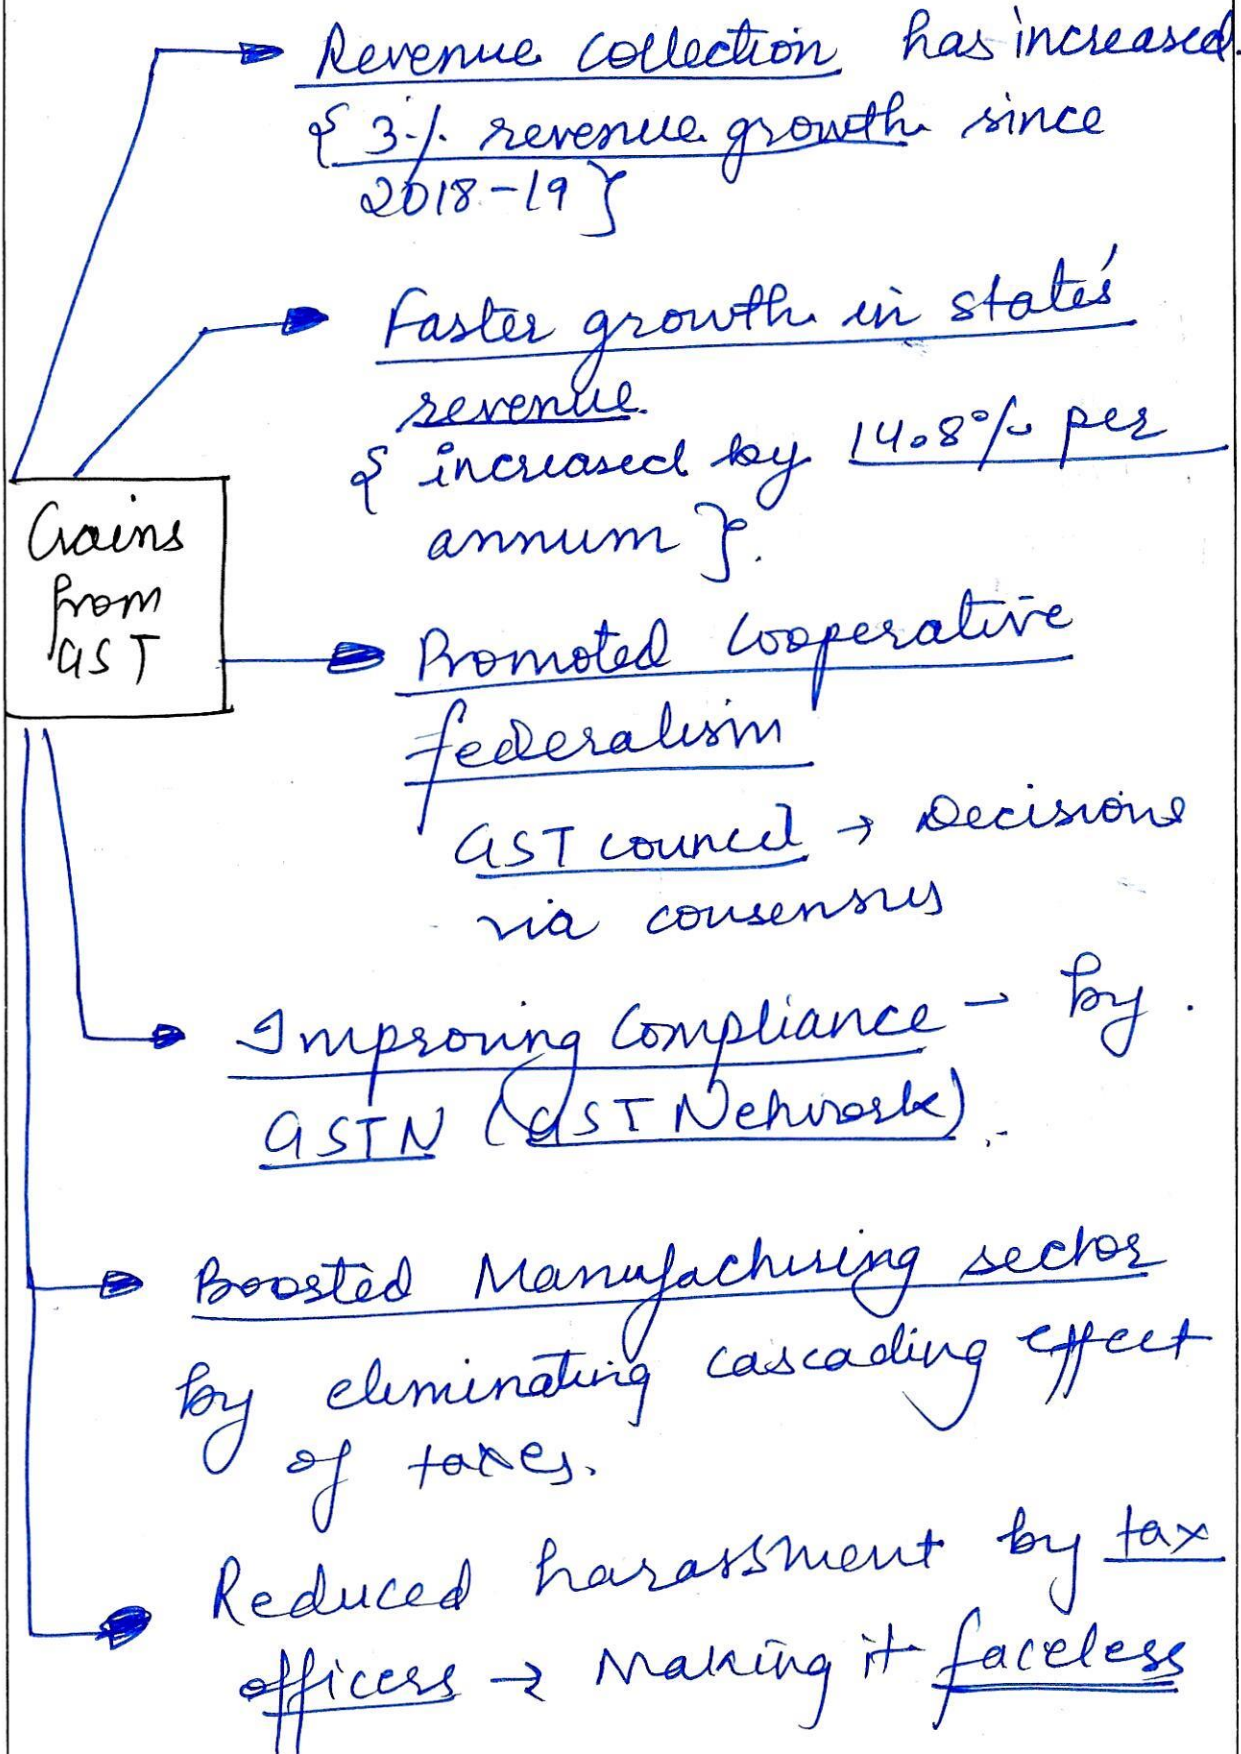 Revenue Collection has increased.
{ 3% revenue growth since
2018-19 }
Faster growth in states'
revenue
{ increased by 14.8% per
annum }.
Gains
from
GST
Promoted Cooperative
federalism
GST council → Decisions
via consensus
Improving Compliance - by
GSTN (GST Network).
Boosted Manufacturing sector
by eliminating cascading effect
of taxes.
Reduced harassment by tax
officers → Making it faceless